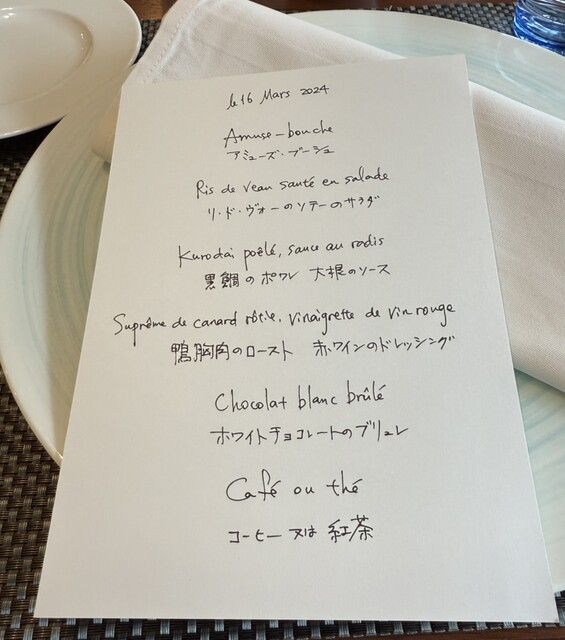 le 16 Mars 2024
Amuse-bouche
アミューズ・ブーシュ
Ris de veau sauté en salade
リ・ド・ヴォーのソテーのサラダ
Kurodai poêlé, sauce au radis
黒鯛のポワレ 大根のソース
Suprême de canard rôtie, vinaigrette de vin rouge
鴨胸肉のロースト 赤ワインのドレッシング
Chocolat blanc brûlé
ホワイトチョコレートのブリュレ
Café ou thé
コーヒー又は紅茶